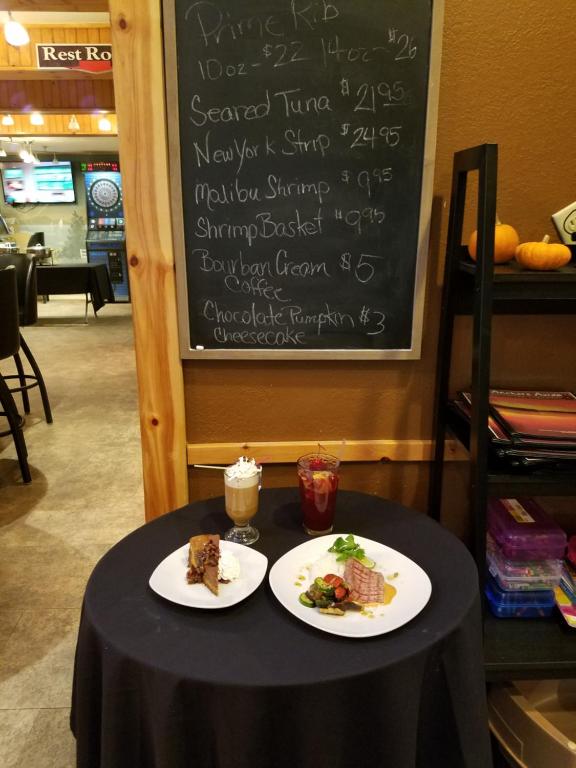 Prime Rib
10oz - $22 14oz - $26
Rest Ro
Seared Tuna $21.95
New York Strip $24.95
Malibu Shrimp $9.95
Shrimp Basket $9.95
Bourban Cream $5
Coffee
Chocolate Pumpkin $3
Cheesecake